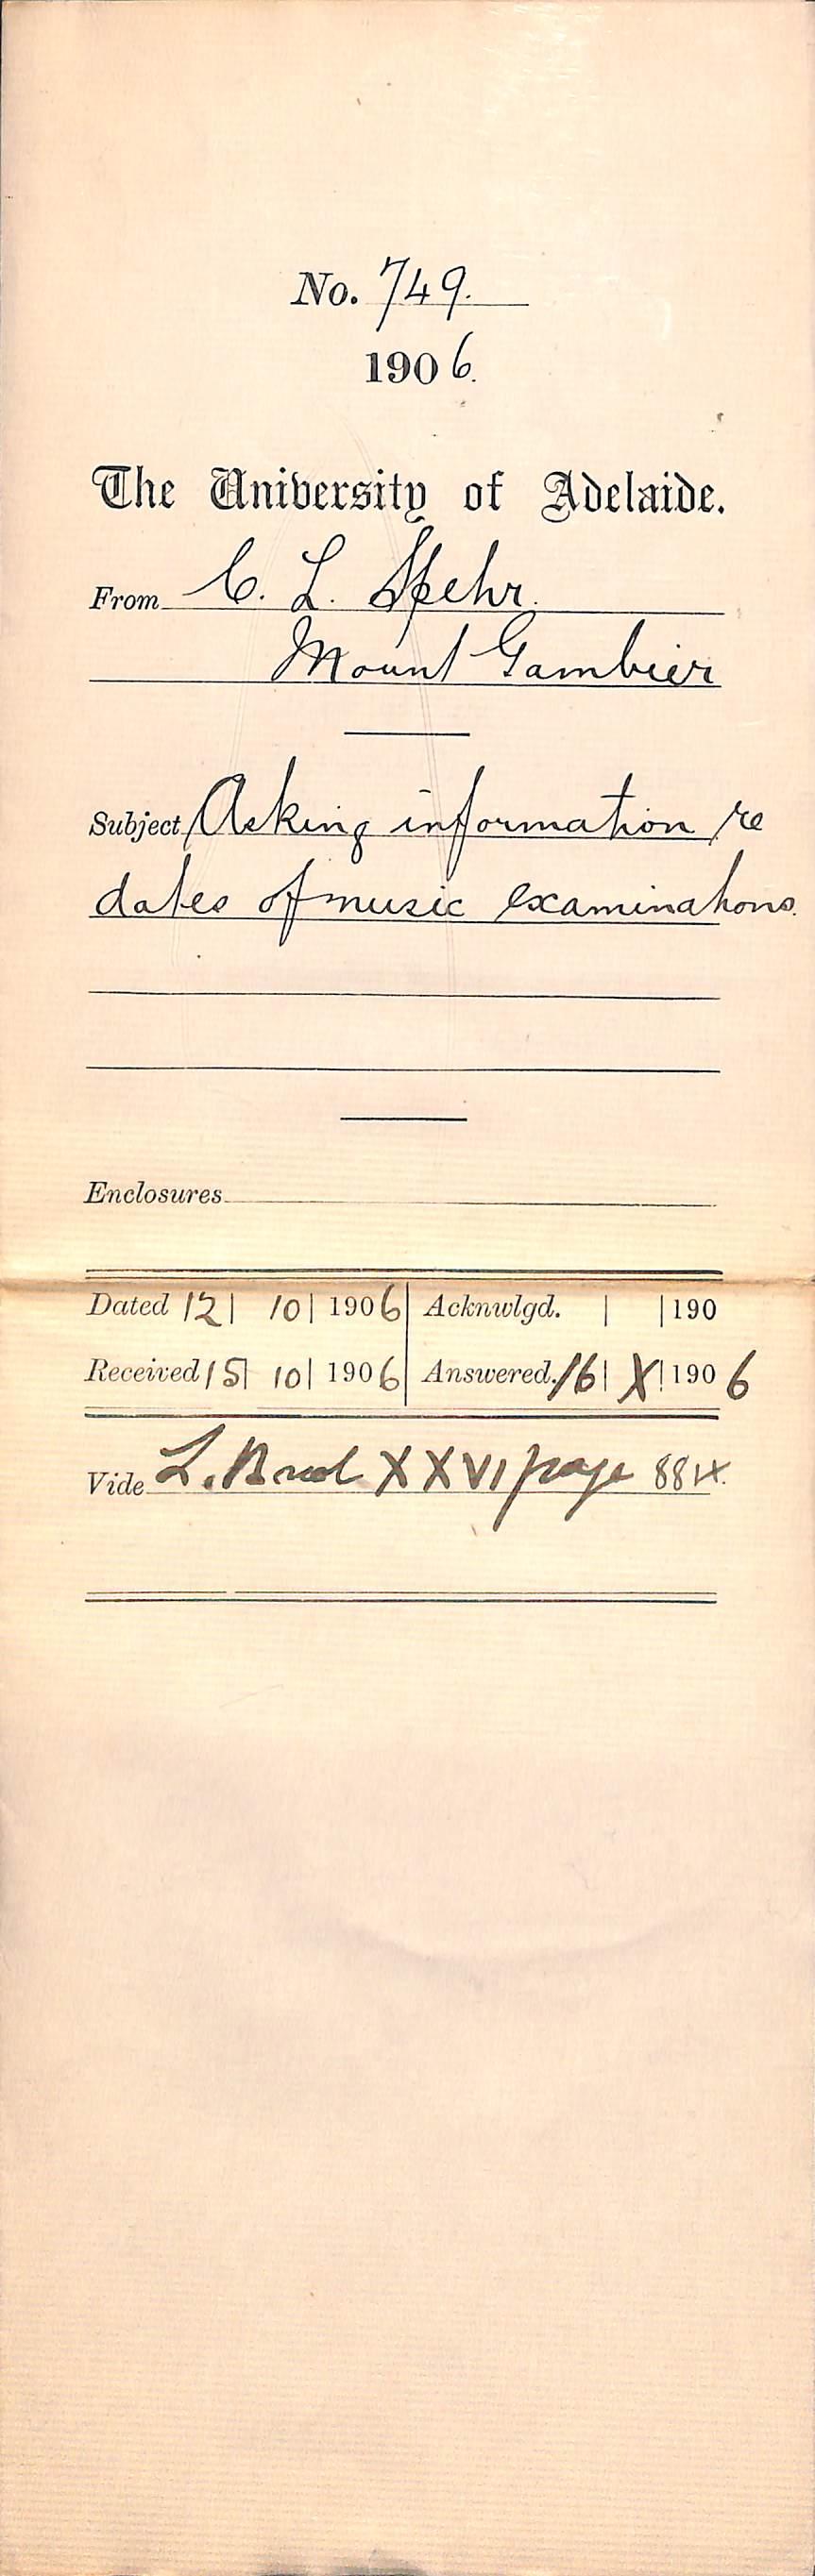 No. 749.
1906.
The University of Adelaide.
From C. L. Spehr.
Mount Gambier
Subject Asking information re
dates of music examinations.
Enclosures
Dated 12| 10| 1906 Acknwlgd. | |190
Received 15| 10| 1906 Answered. 16| X| 1906
Vide L. Book XXVI page